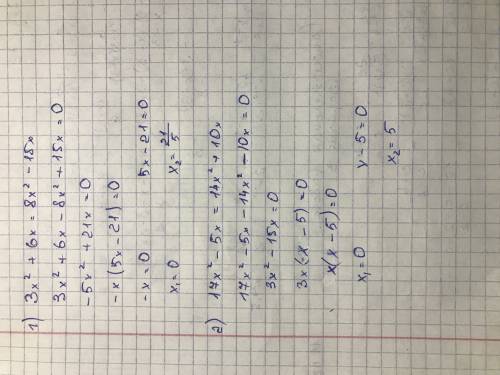 1) 3x² + 6x = 8x² - 15x
3x² + 6x - 8x² + 15x = 0
-5x² + 21x = 0
-x(5x - 21) = 0
-x = 0 5x - 21 = 0
x₁ = 0 x₂ = 21/5
2) 17x² - 5x = 14x² + 10x
17x² - 5x - 14x² - 10x = 0
3x² - 15x = 0
3x(x - 5) = 0
x(x - 5) = 0
x₁ = 0 x - 5 = 0
x₂ = 5